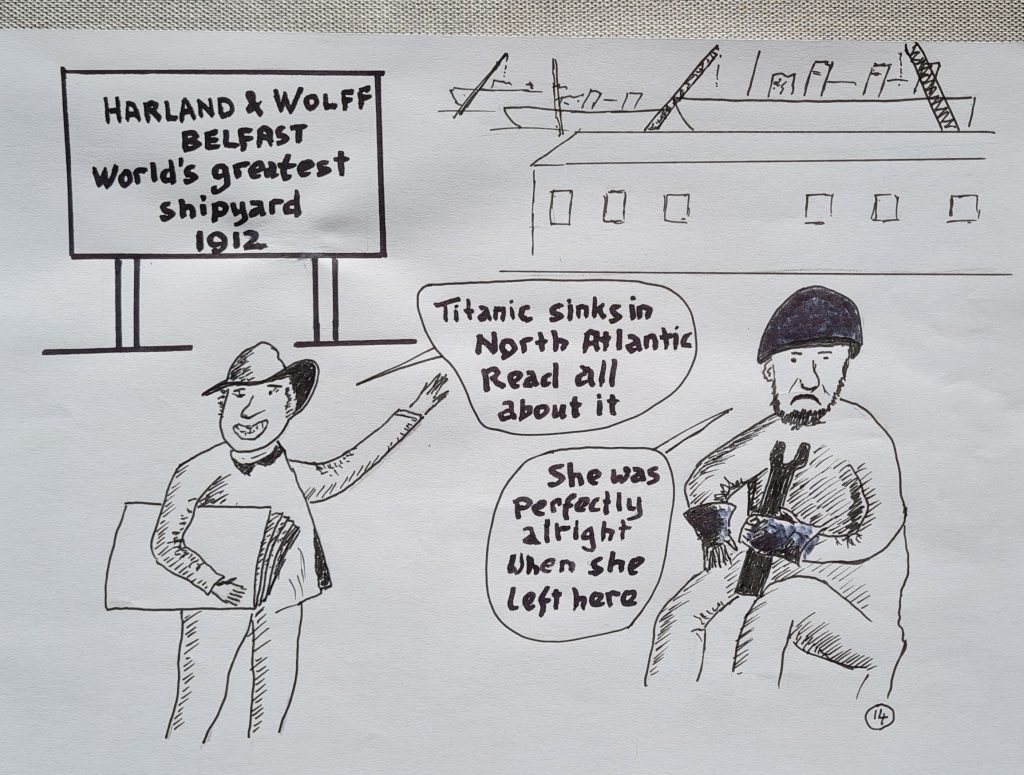 HARLAND & WOLFF
BELFAST
World's greatest
shipyard
1912
Titanic sinks in
North Atlantic
Read all
about it
She was
perfectly
alright
when she
left here
14